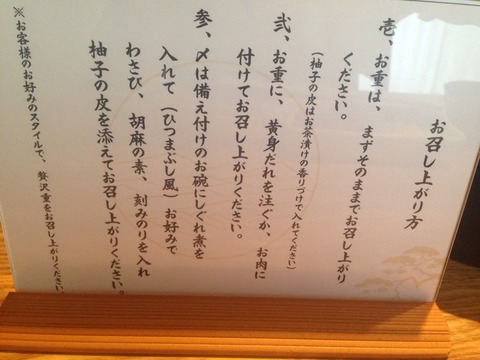 お召し上がり方
壱、お重は、まずそのままでお召し上がり
ください。
(柚子の皮はお茶漬けの香りづけで入れてください)
弐、お重に、黄身だれを注ぐか、お肉に
付けてお召し上がりください。
参、〆は備え付けのお碗にしぐれ煮を
入れて(ひつまぶし風)お好みで
わさび、胡麻の素、刻みのりを入れ
柚子の皮を添えてお召し上がりください。
※お客様のお好みのスタイルで、贅沢重をお召し上がりください。